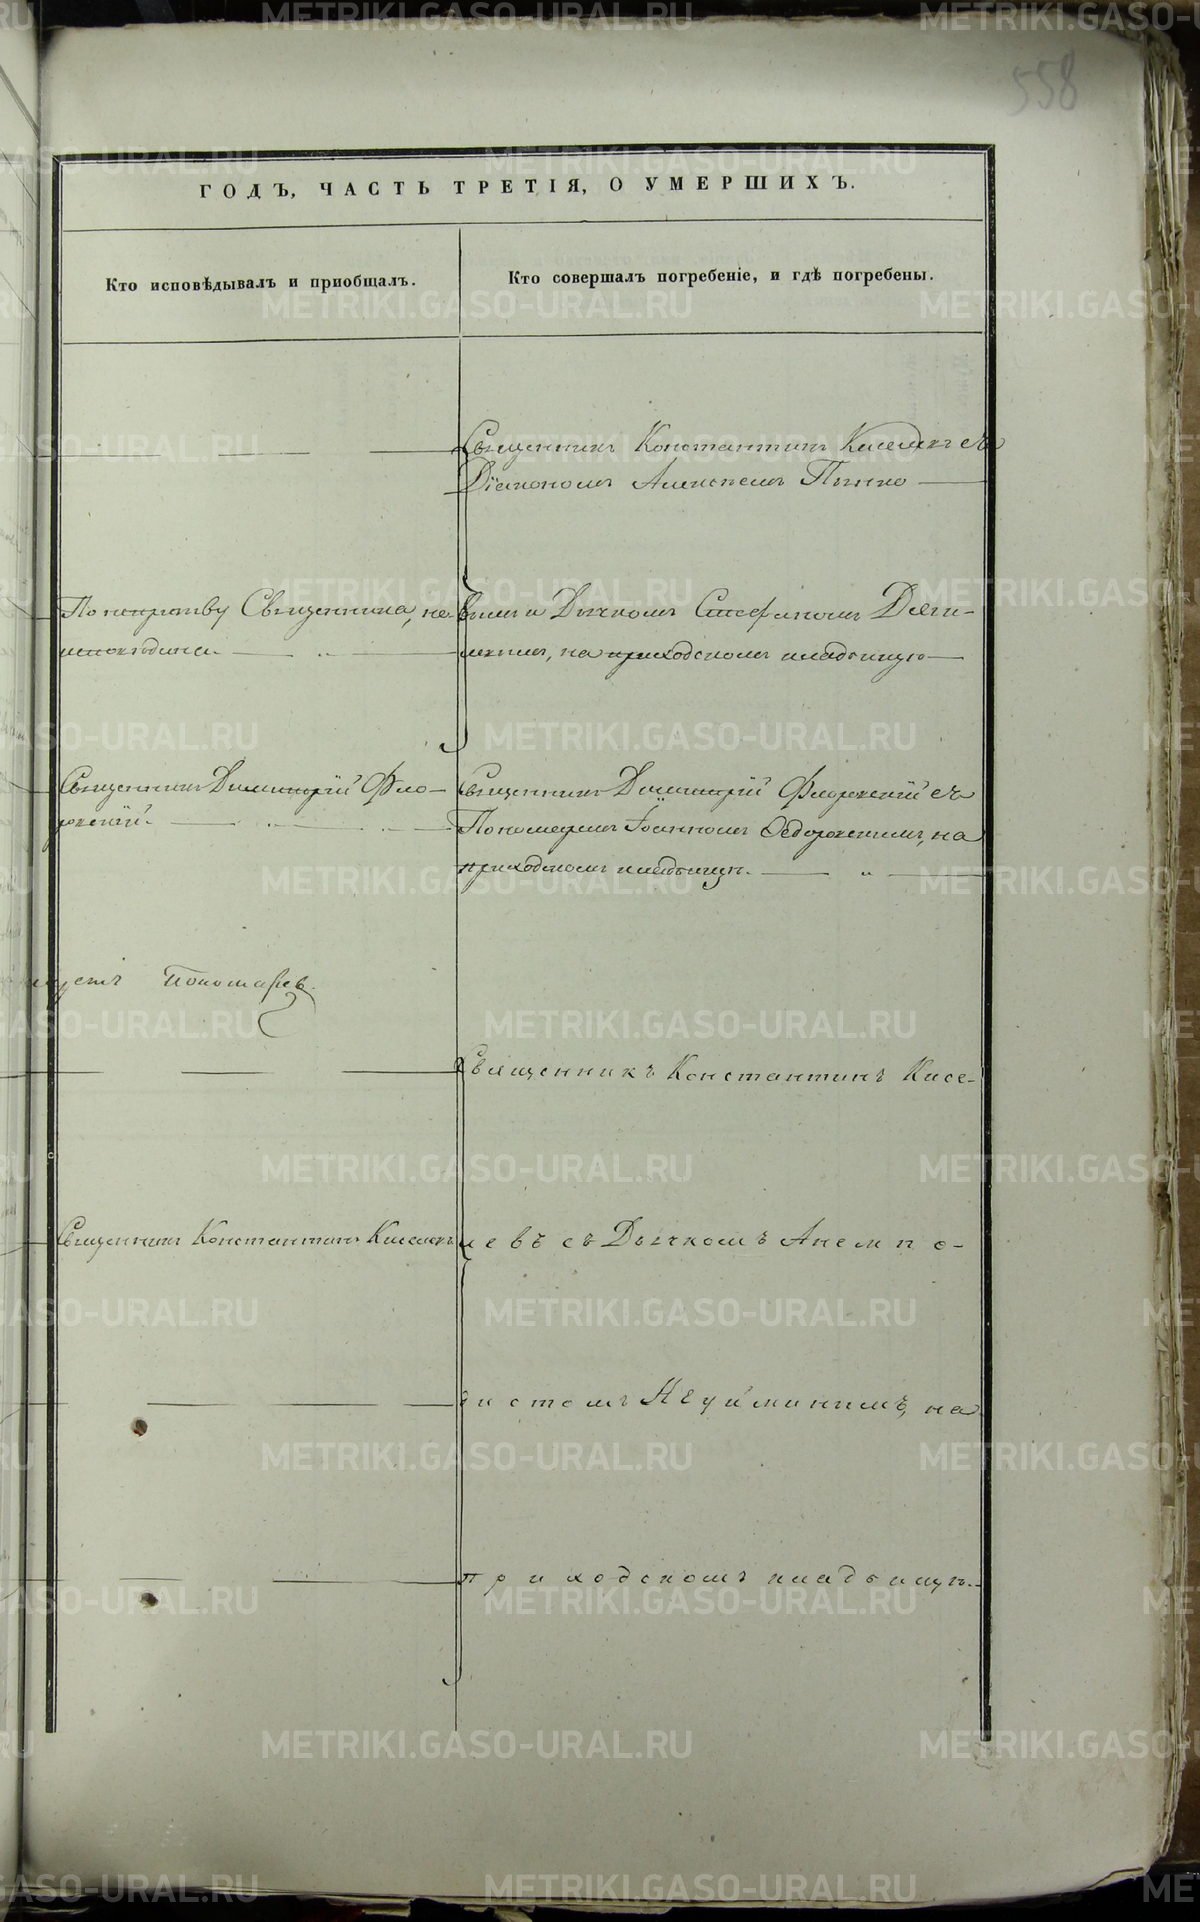 558
ГОДЪ, ЧАСТЬ ТРЕТІЯ, О УМЕРШИХЪ.
Кто исповѣдывалъ и приобщалъ.
Кто совершалъ погребеніе, и гдѣ погребены.
Священникъ Константинъ Киселевъ съ
Діакономъ Алексѣемъ
Священника, не
вымъ и Дьячкомъ Стефаномъ
на приходскомъ кладбищѣ
Священникъ Димитрій Фло-
ровскій.
Священникъ Димитрій Флоровскій съ
Пономаремъ Іоанномъ Ѳедоровскимъ, на
приходскомъ кладбищѣ.
Пономарев
Священникъ Константинъ Кисе-
Священникъ Константинъ Киселевъ
левъ съ Дьячкомъ Анемпо-
дистомъ Неуйминимъ, на
приходскомъ кладбищѣ.
METRIKI.GASO-URAL.RU